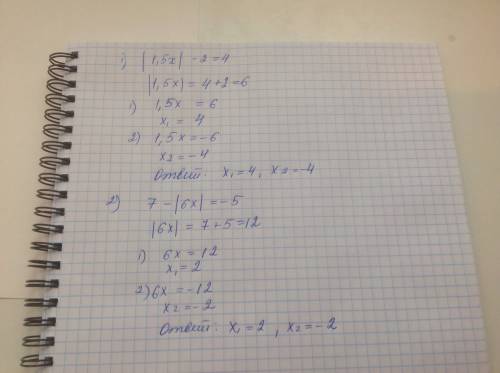 1) |1,5x| - 2 = 4
|1,5x| = 4+2 = 6
1) 1,5x = 6
x₁ = 4
2) 1,5x = -6
x₂ = -4
Ответ: x₁ = 4, x₂ = -4
2) 7 - |6x| = -5
|6x| = 7+5 = 12
1) 6x = 12
x₁ = 2
2) 6x = -12
x₂ = -2
Ответ: x₁ = 2, x₂ = -2